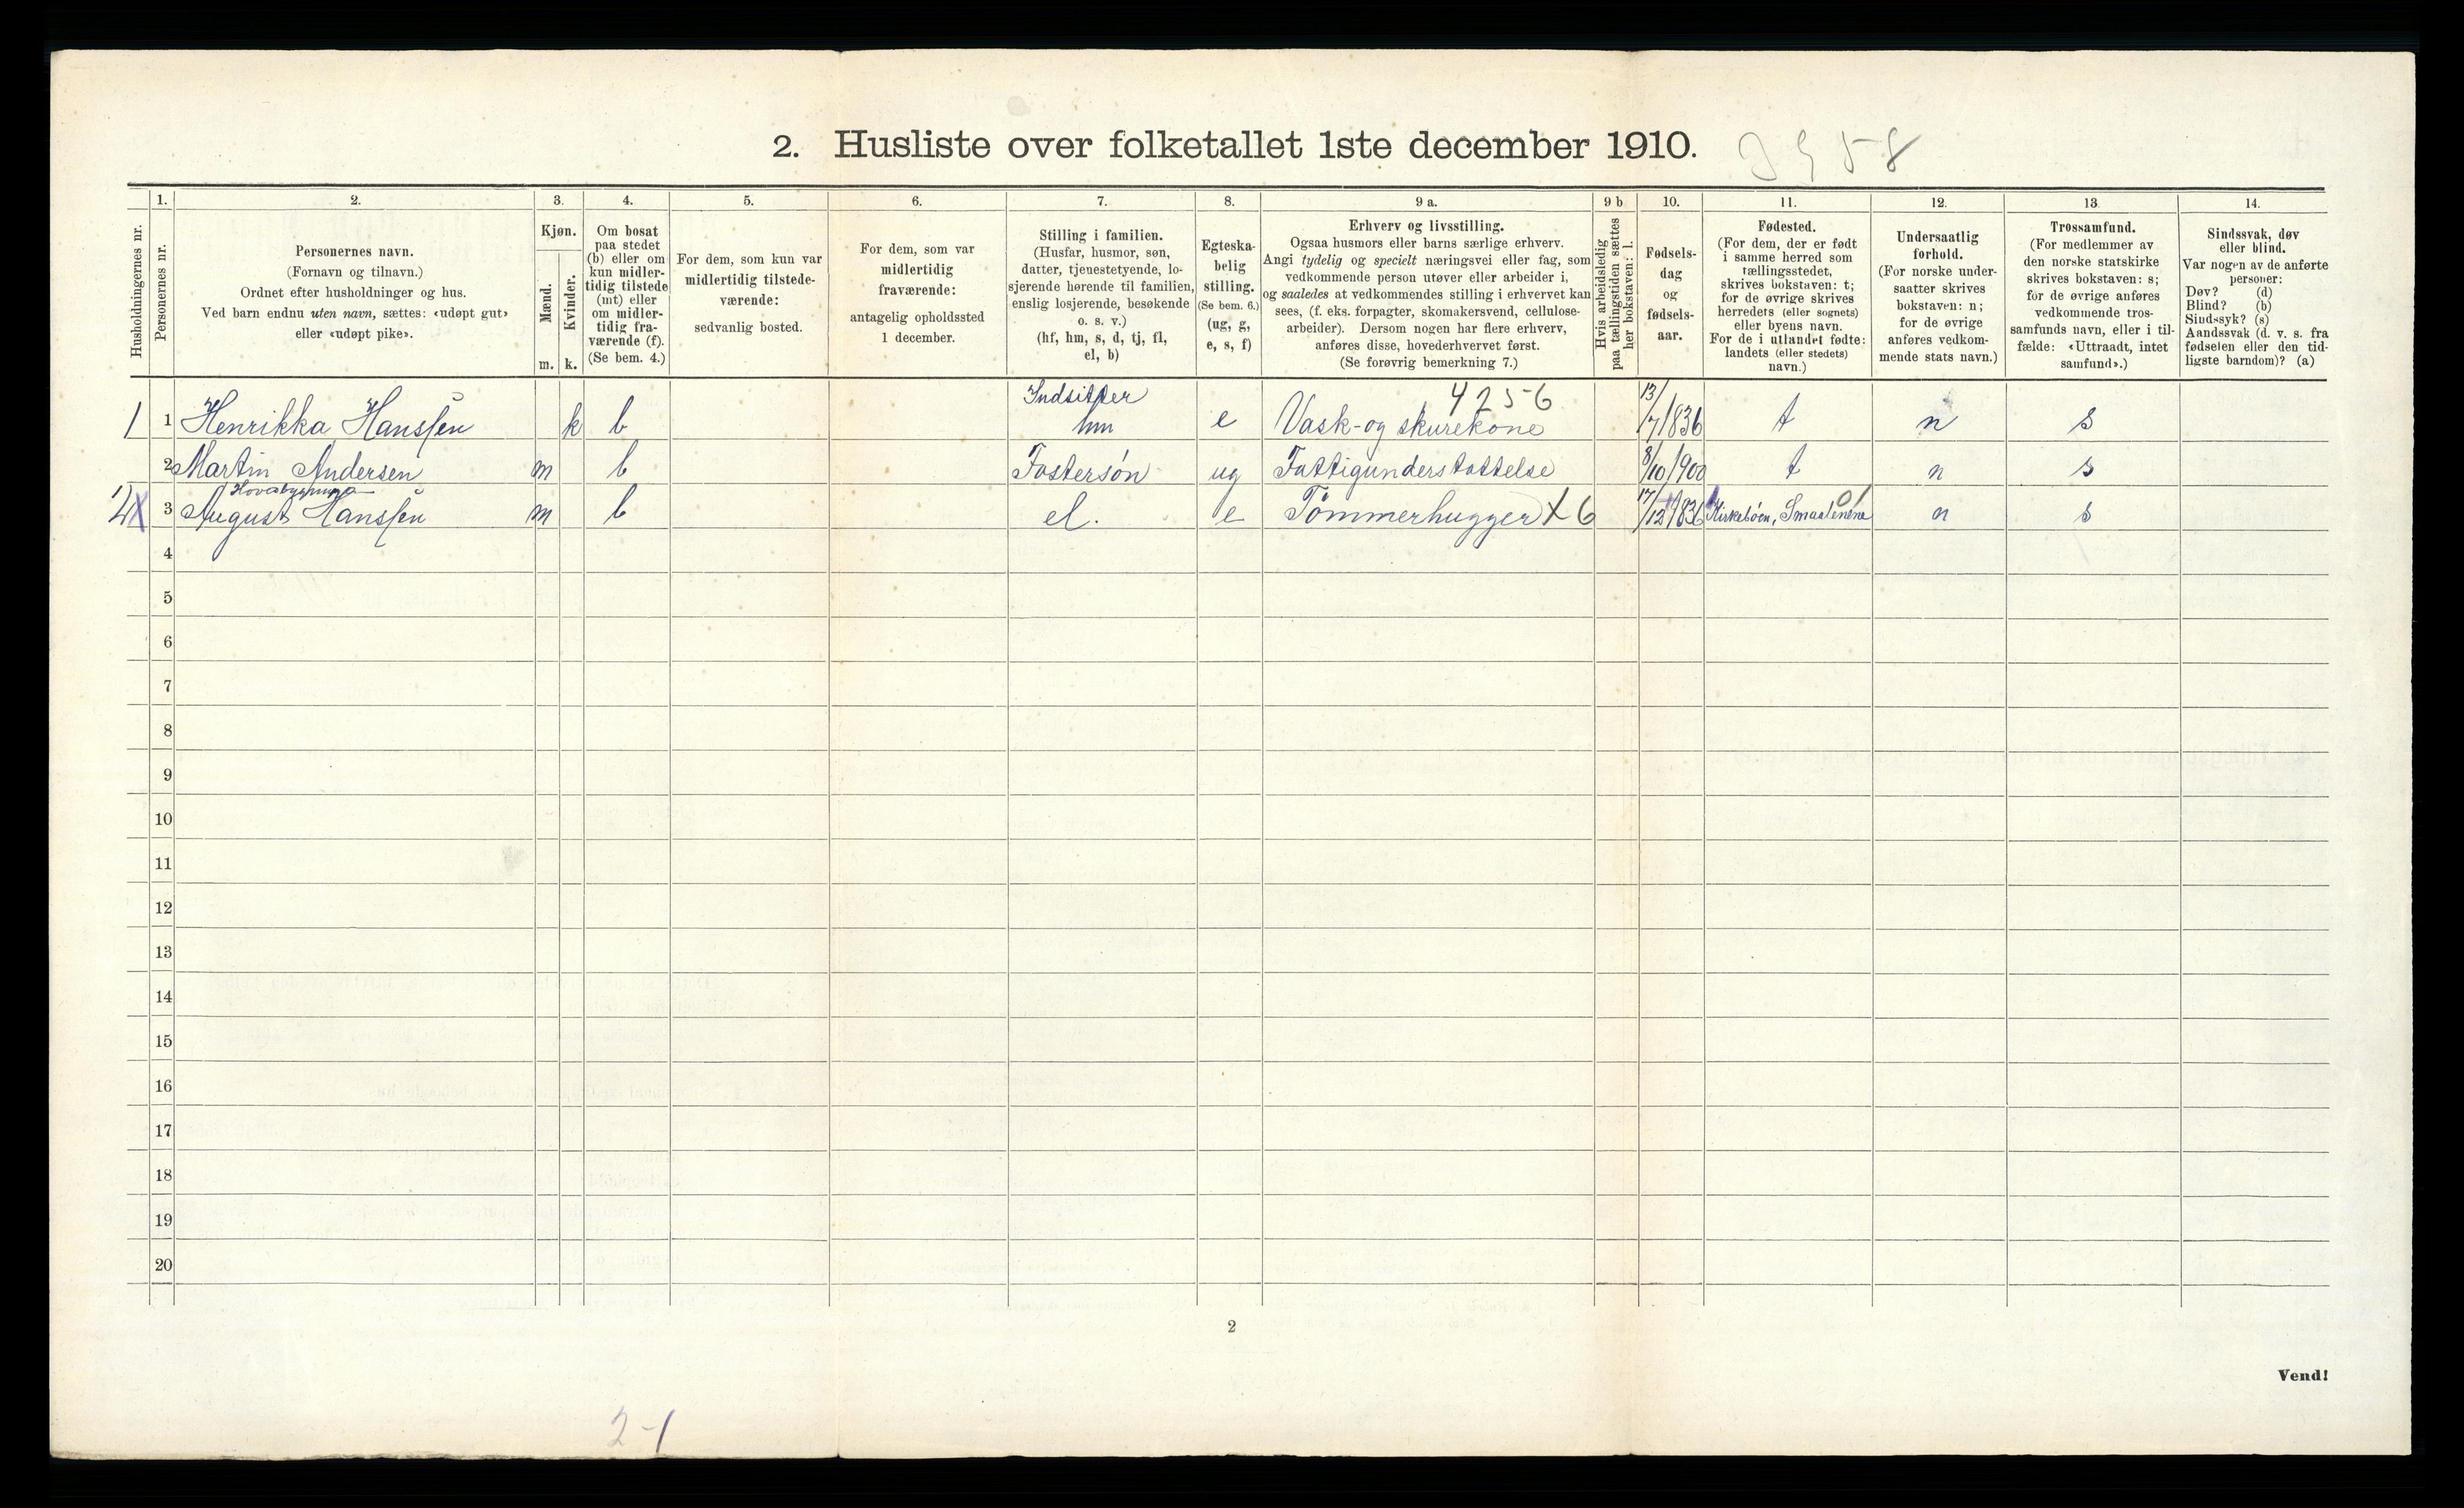 2. Husliste over folketallet 1ste december 1910.
1. 2. 3. 4. 5. 6. 7. 8. 9 a. 9 b 10. 11. 12. 13. 14.
Husholdningernes nr.
Personernes nr.
Personernes navn.
(Fornavn og tilnavn.)
Ordnet efter husholdninger og hus.
Ved barn endnu uten navn, sættes: «udøpt gut»
eller «udøpt pike».
Kjøn.
Mænd.
Kvinder.
m. k.
Om bosat
paa stedet
(b) eller om
kun midler-
tidig tilstede
(mt) eller
om midler-
tidig fra-
værende (f).
(Se bem. 4.)
For dem, som kun var
midlertidig tilstede-
værende:
sedvanlig bosted.
For dem, som var
midlertidig
fraværende:
antagelig opholdssted
1 december.
Stilling i familien.
(Husfar, husmor, søn,
datter, tjenestetyende, lo-
sjerende hørende til familien,
enslig losjerende, besøkende
o. s. v.)
(hf, hm, s, d, tj, fl,
el, b)
Egteska-
belig
stilling.
(Se bem. 6.)
(ug, g,
e, s, f)
Erhverv og livsstilling.
Ogsaa husmors eller barns særlige erhverv.
Angi tydelig og specielt næringsvei eller fag, som
vedkommende person utøver eller arbeider i,
og saaledes at vedkommendes stilling i erhvervet kan
sees, (f. eks. forpagter, skomakersvend, cellulose-
arbeider). Dersom nogen har flere erhverv,
anføres disse, hovederhvervet først.
(Se forøvrig bemerkning 7.)
Hvis arbeidsledig
paa tællingstiden sættes
her bokstaven: l.
Fødsels-
dag
og
fødsels-
aar.
Fødested.
(For dem, der er født
i samme herred som
tællingsstedet,
skrives bokstaven: t;
for de øvrige skrives
herredets (eller sognets)
eller byens navn.
For de i utlandet fødte:
landets (eller stedets)
navn.)
Undersaatlig
forhold.
(For norske under-
saatter skrives
bokstaven: n;
for de øvrige
anføres vedkom-
mende stats navn.)
Trossamfund.
(For medlemmer av
den norske statskirke
skrives bokstaven: s;
for de øvrige anføres
vedkommende tros-
samfunds navn, eller i til-
fælde: «Uttraadt, intet
samfund».)
Sindssvak, døv
eller blind.
Var nogen av de anførte
personer:
Døv? (d)
Blind? (b)
Sindssyk? (s)
Aandssvak (d. v. s. fra
fødselen eller den tid-
ligste barndom)? (a)
Indsitter 4256
1 1 Henrikka Hanssen k b hm e Vask- og skurekone 13/7 1836 t n s
2 Martin Andersen m b Fostersøn ug Fattigunderstøttelse 8/10 1900 t n s
3 August Hanssen m b el. e Tømmerhugger X 6 17/12 1836 Kirkebøen, Smaalenene 01 n s
4
5
6
7
8
9
10
11
12
13
14
15
16
17
18
19
20
2
Vend!
2-1